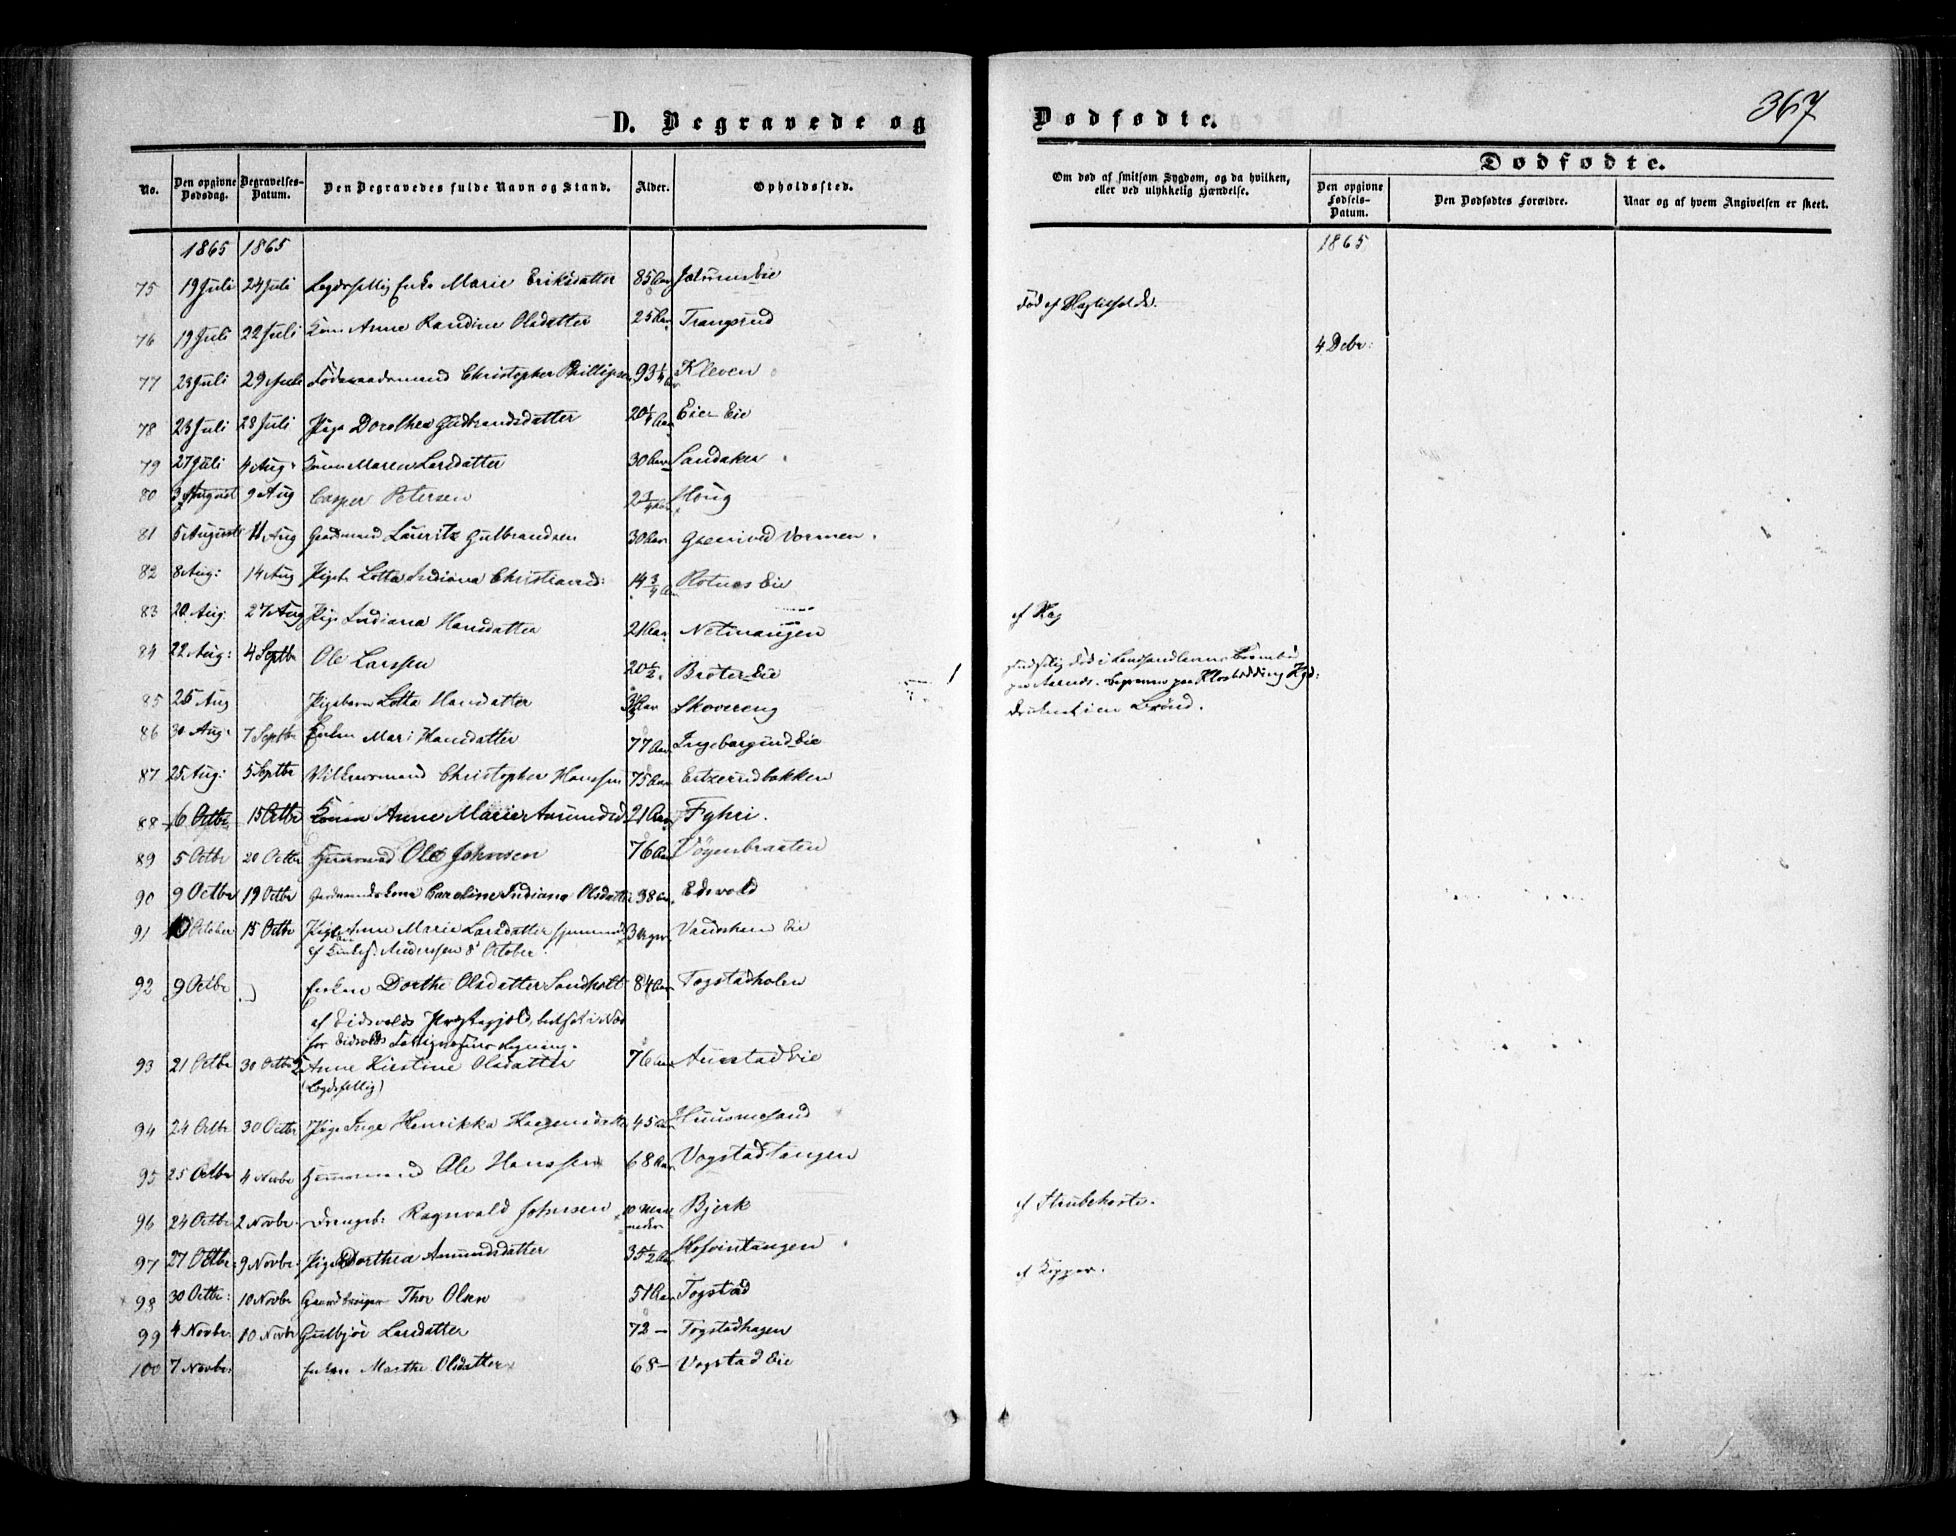 367
D. Begravede og Dødfødte.
Dødfødte.
No.
Den opgivne Dødsdag.
Begravelses-Datum.
Den Begravedes fulde Navn og Stand.
Alder.
Opholdssted.
Om død af smitsom Sygdom, og da hvilken, eller ved ulykkelig Hændelse.
Den opgivne Fødsels-Datum.
Den Dødfødtes Forældre.
Naar og af hvem Angivelsen er skeet.
1865 1865 1865
75 19 Juli 24 Juli Enke Marie Eriksdatter 85 Aar
76 19 Juli 22 Juli Kone Anne Randine Olsdatter 25 Aar Trangsrud død af
4 Debr:
77 23 Juli 29 Juli Føderaadsmand Christopher Phillipsen 93 1/4 Aar Kleven
78 23 Juli 28 Juli Pige Dorothea Gudbrandsdatter 20 1/4 Aar Eie
79 27 Juli 4 Aug. Kone Maren Larsdatter 30 Aar Sandaker
80 3 August 9 Aug Casper Petersen 2 3/4 Aar Houg
81 5 August 11 Aug Lauritz Gulbrandsen 30 Aar ved Vormen.
82 8 Aug: 14 Aug Pige Lotta Indiana Christiansd: 14 3/4 Aar Rotnes Eie
83 20 Aug. 27 Aug Pige Indiana Hansdatter 21 Aar Netmangen af
84 22 Aug: 4 Septbr Ole Larssen 20 1/2 Brøter Eie død i
85 25 Aug Pigebarn Lotta Hansdatter Aar Skovereng druknet i en Brønd.
86 30 Aug. 7 Septbr Enken Mari Hansdatter 77 Aar Ingebørgsrud Eie
87 25 Aug: 5 Septbr Christopher Hanssen 75 Aar
88 6 Octbr 15 Octbr Konen Anne Marie Amundsd. 21 Aar Fyhri.
89 5 Octbr 20 Octbr Huusmand Ole Johnsen 76 Aar Døgenbraaten
90 9 Octbr 19 Octbr Gaardmandskone Caroline Indiana Olsdatter 38 Aar Edsvold
91 10 October 15 Octbr Pigeb. Anne Marie Larsdatter hjemmedøbt 3 Uger Eie
af Andersen 8 October.
92 9 Octbr Enken Dorthe Olsdatter Sandholt 84 Aar Togstadholen
af Eidsvolds Præstegjeld, bosat i Næs
for Eidsvolds Regning.
93 21 Octbr 30 Octbr Anne Kirstine Olsdatter 76 Aar Aurstad Eie
(Lægdsfattig)
94 24 Octbr 30 Octbr Pige Inge Henrikka Haagensdatter 45 Aar Huusmosand
95 25 Octbr 4 Novbr Huusmand Ole Hanssen 68 Aar Vogstadtangen
96 24 Octbr 2 Novbr. Drengeb: Ragnvald Johnsen 10 Maaneder Bjerk af Strubehoste.
97 27 Octbr: 9 Novbr. Pige Dorthea Amundsdatter 35 1/2 Aar Hofvintangen
af Kopper.
98 30 Octbr: 10 Novbr Gaardbruger Thor Olsen 51 Aar Togstad
99 4 Novbr: 10 Novbr Gulbjør Larsdatter 72 – Togstadhagen
100 7 Novbr: Enken Marthe Olsdatter 68 – Vogstad Eie